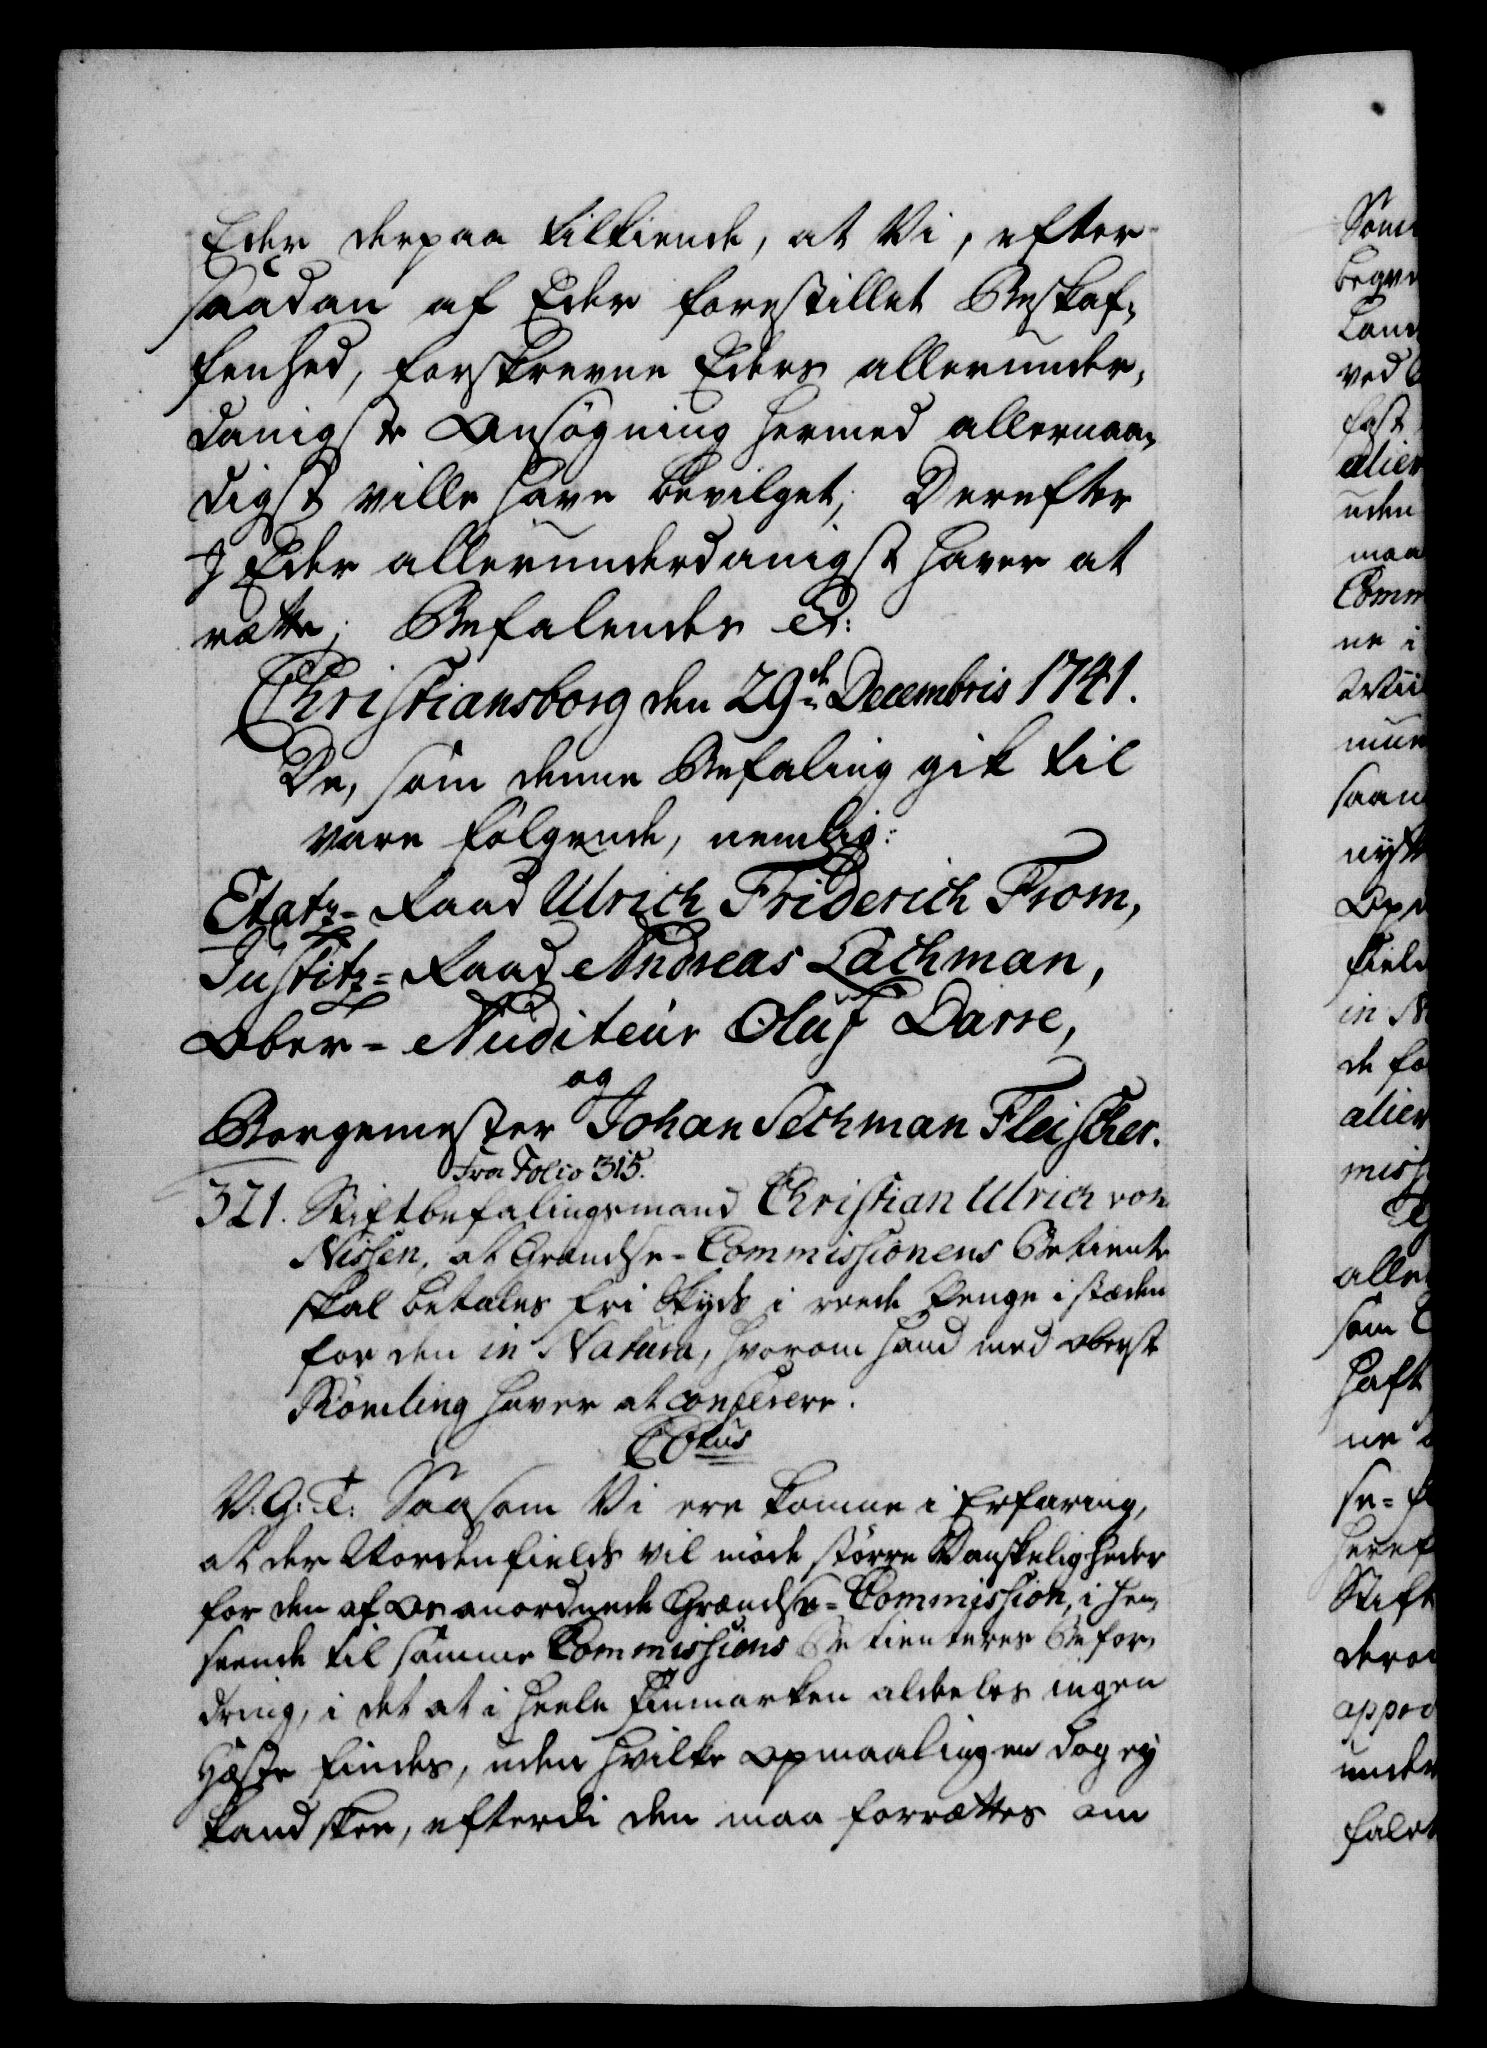 Eder derpaa tilkiende, at Vi, efter
saadan af Eder forestillet Beskaf,
fenhed, forskrevne Eders allerunder,
danigste Ansøgning hermed allernaa,
digst ville have bevilget; Derefter
J Eder allerunderdanigst haver at
rætte; Befalendes &:
Christiansborg den 29de Decembris 1741.
De, som denne Befaling gik til
vare følgende, nemlig:
Etatz-Raad Ulrich Friderich From,
Justitz-Raad Andreas Lachman,
Ober-Auditeur Oluf Darre,
og
Borgemester Johan Sechman Fleischer.
Fra Folio 315.
321. Stiftbefalingsmand Christian Ulrich von
Nissen, at Grændse-Commissionens Betiente
skal betales fri Skyds i reede Penge i stæden
for den in Natura, hvorom hand med Oberst
Römling haver at conferere.
C6tus
V: G: T: Saasom Vi ere komne i Erfaring,
at der Nordenfields vil møde større Vanskeligheder
for den af Os anordnede Grændse-Commission, i hen,
seende til samme Commissions Betienteres Befor,
dring, i det at i heele Finmarken aldeeles ingen
Hæste findes, uden hvilke Opmaalingen dog ey
kand skee, efterdi den maa forrættes om
Som
begve
Land
ved
fast
alier
uden
maa
Comm
ne i
mun
saan
nytt
Opm
field
in N
de fo
alier
miss
alle
som
haft
ne
se-
heref
Stift
dero
appro
under
falet